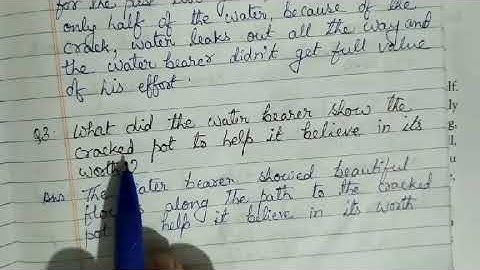 for the past
only half of the water, because of the
crack, water leaks out all the way and
the water bearer didn't get full value
of his effort.
Q3. What did the water bearer show the
cracked pot to help it believe in its
worth?
Ans The water bearer showed beautiful
along the path to the cracked
pot help it believe in its worth
If
ly
g.
l,
u